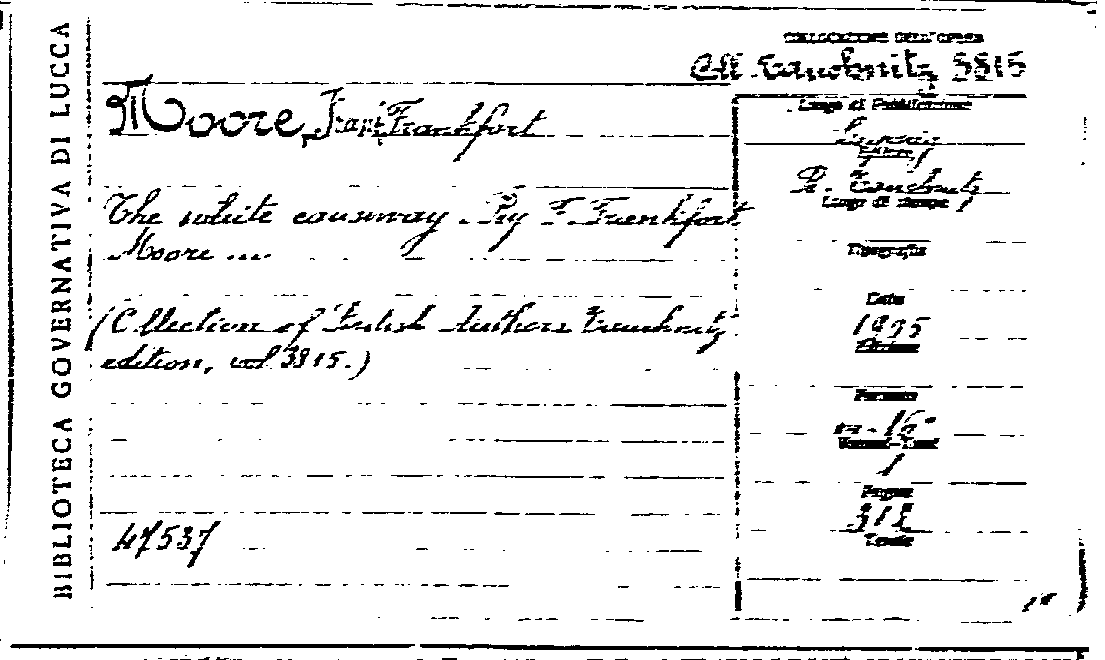 BIBLIOTECA GOVERNATIVA DI LUCCA
COLLOCAZIONE DELL'OPERA
Coll. Tauchnitz 3815
Moore, Frankfort
The white causeway. By F. Frankfort
Moore ...
(Collection of British Authors Tauchnitz
edition, vol 3815.)
47537
Luogo di Pubblicazione
Leipzig
Editore
B. Tauchnitz
Luogo di stampa
Tipografia
Data
Edizione
Formato
in-16°
1
Pagine
312
Tavole